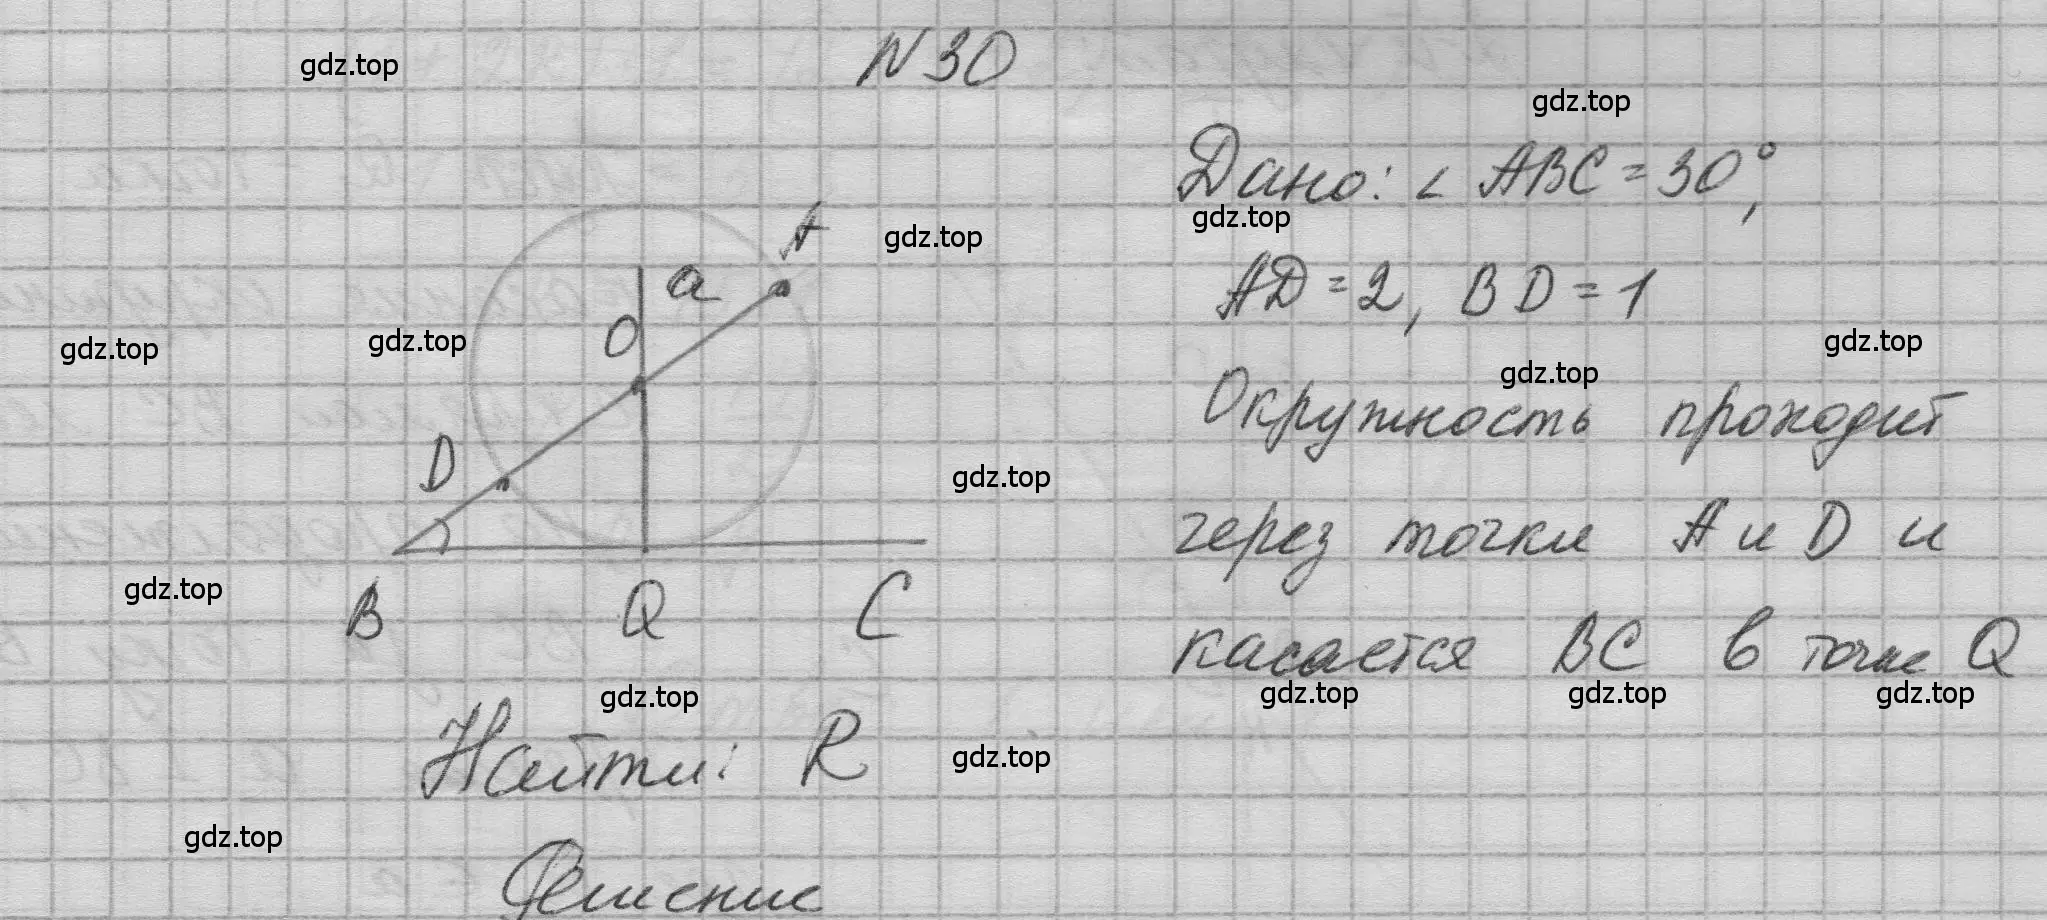 N 30
gdz.top
gdz.top
Дано: ∠ ABC = 30°,
gdz.top
A
gdz.top
a
AD = 2, BD = 1
O
gdz.top
gdz.top
gdz.top
gdz.top
Окружность проходит
D
gdz.top
через точки A и D и
gdz.top
B Q C
касается BC в точке Q
gdz.top
gdz.top
gdz.top
gdz.top
Найти: R
gdz.top
gdz.top
Решение